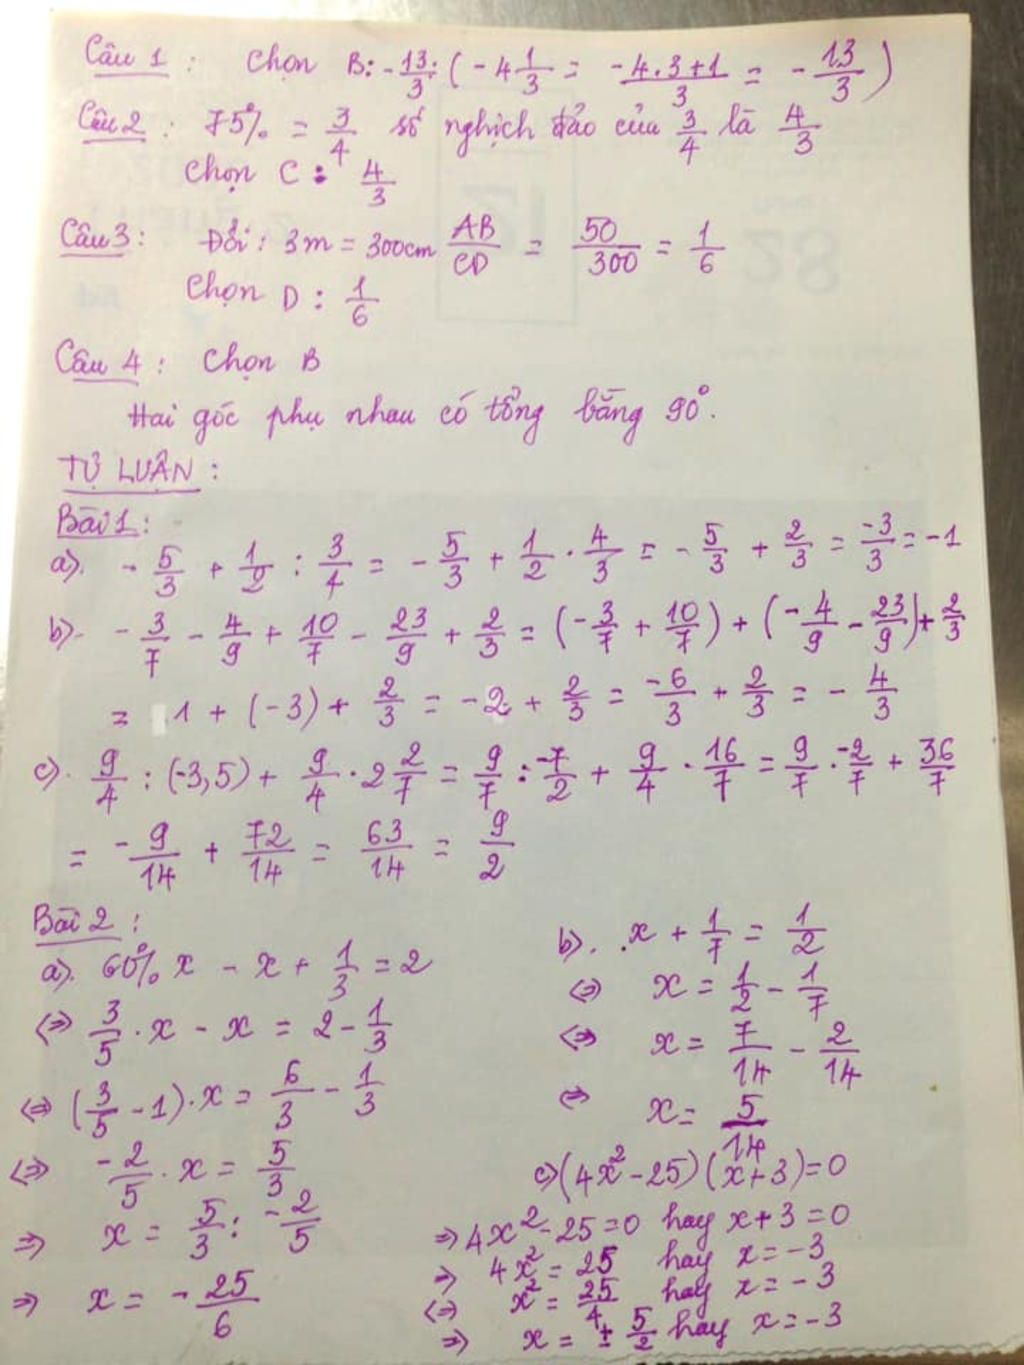 Câu 1 : Chọn B: -13/3 ( -4 1/3 = -4.3+1/3 = -13/3 )
Câu 2 : 75% = 3/4 số nghịch đảo của 3/4 là 4/3
Chọn C : 4/3
Câu 3 : Đổi : 3m = 300cm AB/CD = 50/300 = 1/6
Chọn D : 1/6
Câu 4 : Chọn B
Hai góc phụ nhau có tổng bằng 90°.
TỰ LUẬN :
Bài 1 :
a). -5/3 + 1/2 : 3/4 = -5/3 + 1/2 . 4/3 = -5/3 + 2/3 = -3/3 = -1
b). -3/7 - 4/9 + 10/7 - 23/9 + 2/3 = (-3/7 + 10/7) + (-4/9 - 23/9) + 2/3
= 1 + (-3) + 2/3 = -2 + 2/3 = -6/3 + 2/3 = -4/3
c). 9/4 : (-3,5) + 9/4 . 2 2/7 = 9/7 : -7/2 + 9/4 . 16/7 = 9/7 . -2/7 + 36/7
= -9/14 + 72/14 = 63/14 = 9/2
Bài 2 :
a). 60% x - x + 1/3 = 2
⇔ 3/5 . x - x = 2 - 1/3
⇔ (3/5 - 1) . x = 6/3 - 1/3
⇔ -2/5 . x = 5/3
⇒ x = 5/3 : -2/5
⇒ x = -25/6
b). x + 1/7 = 1/2
⇔ x = 1/2 - 1/7
⇔ x = 7/14 - 2/14
⇔ x = 5/14
c) (4x² - 25) (x + 3) = 0
⇒ 4x² - 25 = 0 hay x + 3 = 0
⇒ 4x² = 25 hay x = -3
⇔ x² = 25/4 hay x = -3
⇒ x = ± 5/2 hay x = -3